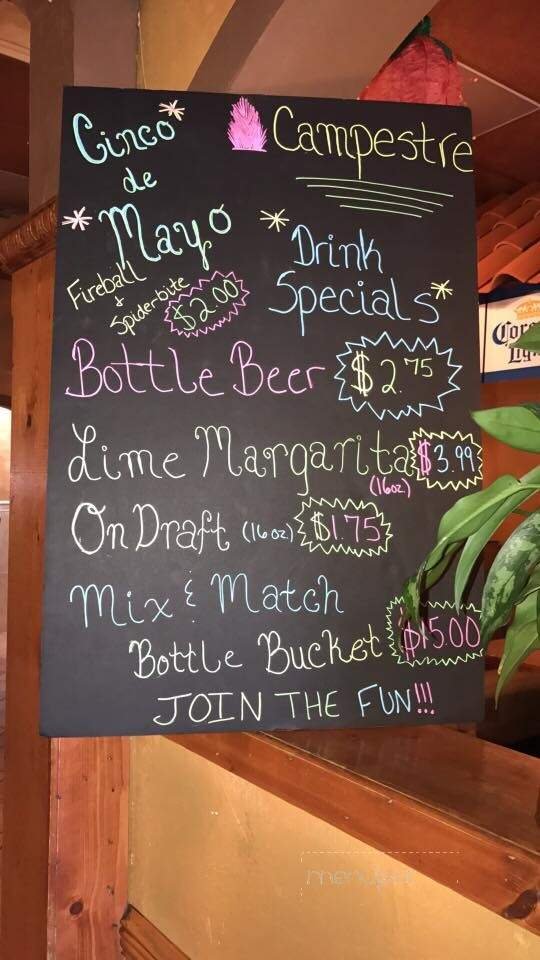 Cinco
de
Mayo
Campestre
Drink
Specials
Fireball
+
Spiderbite
$2.00
Bottle Beer $2.75
Lime Margarita $3.99
(16oz.)
On Draft (16oz) $1.75
Mix & Match
Bottle Bucket $15.00
JOIN THE FUN!!!